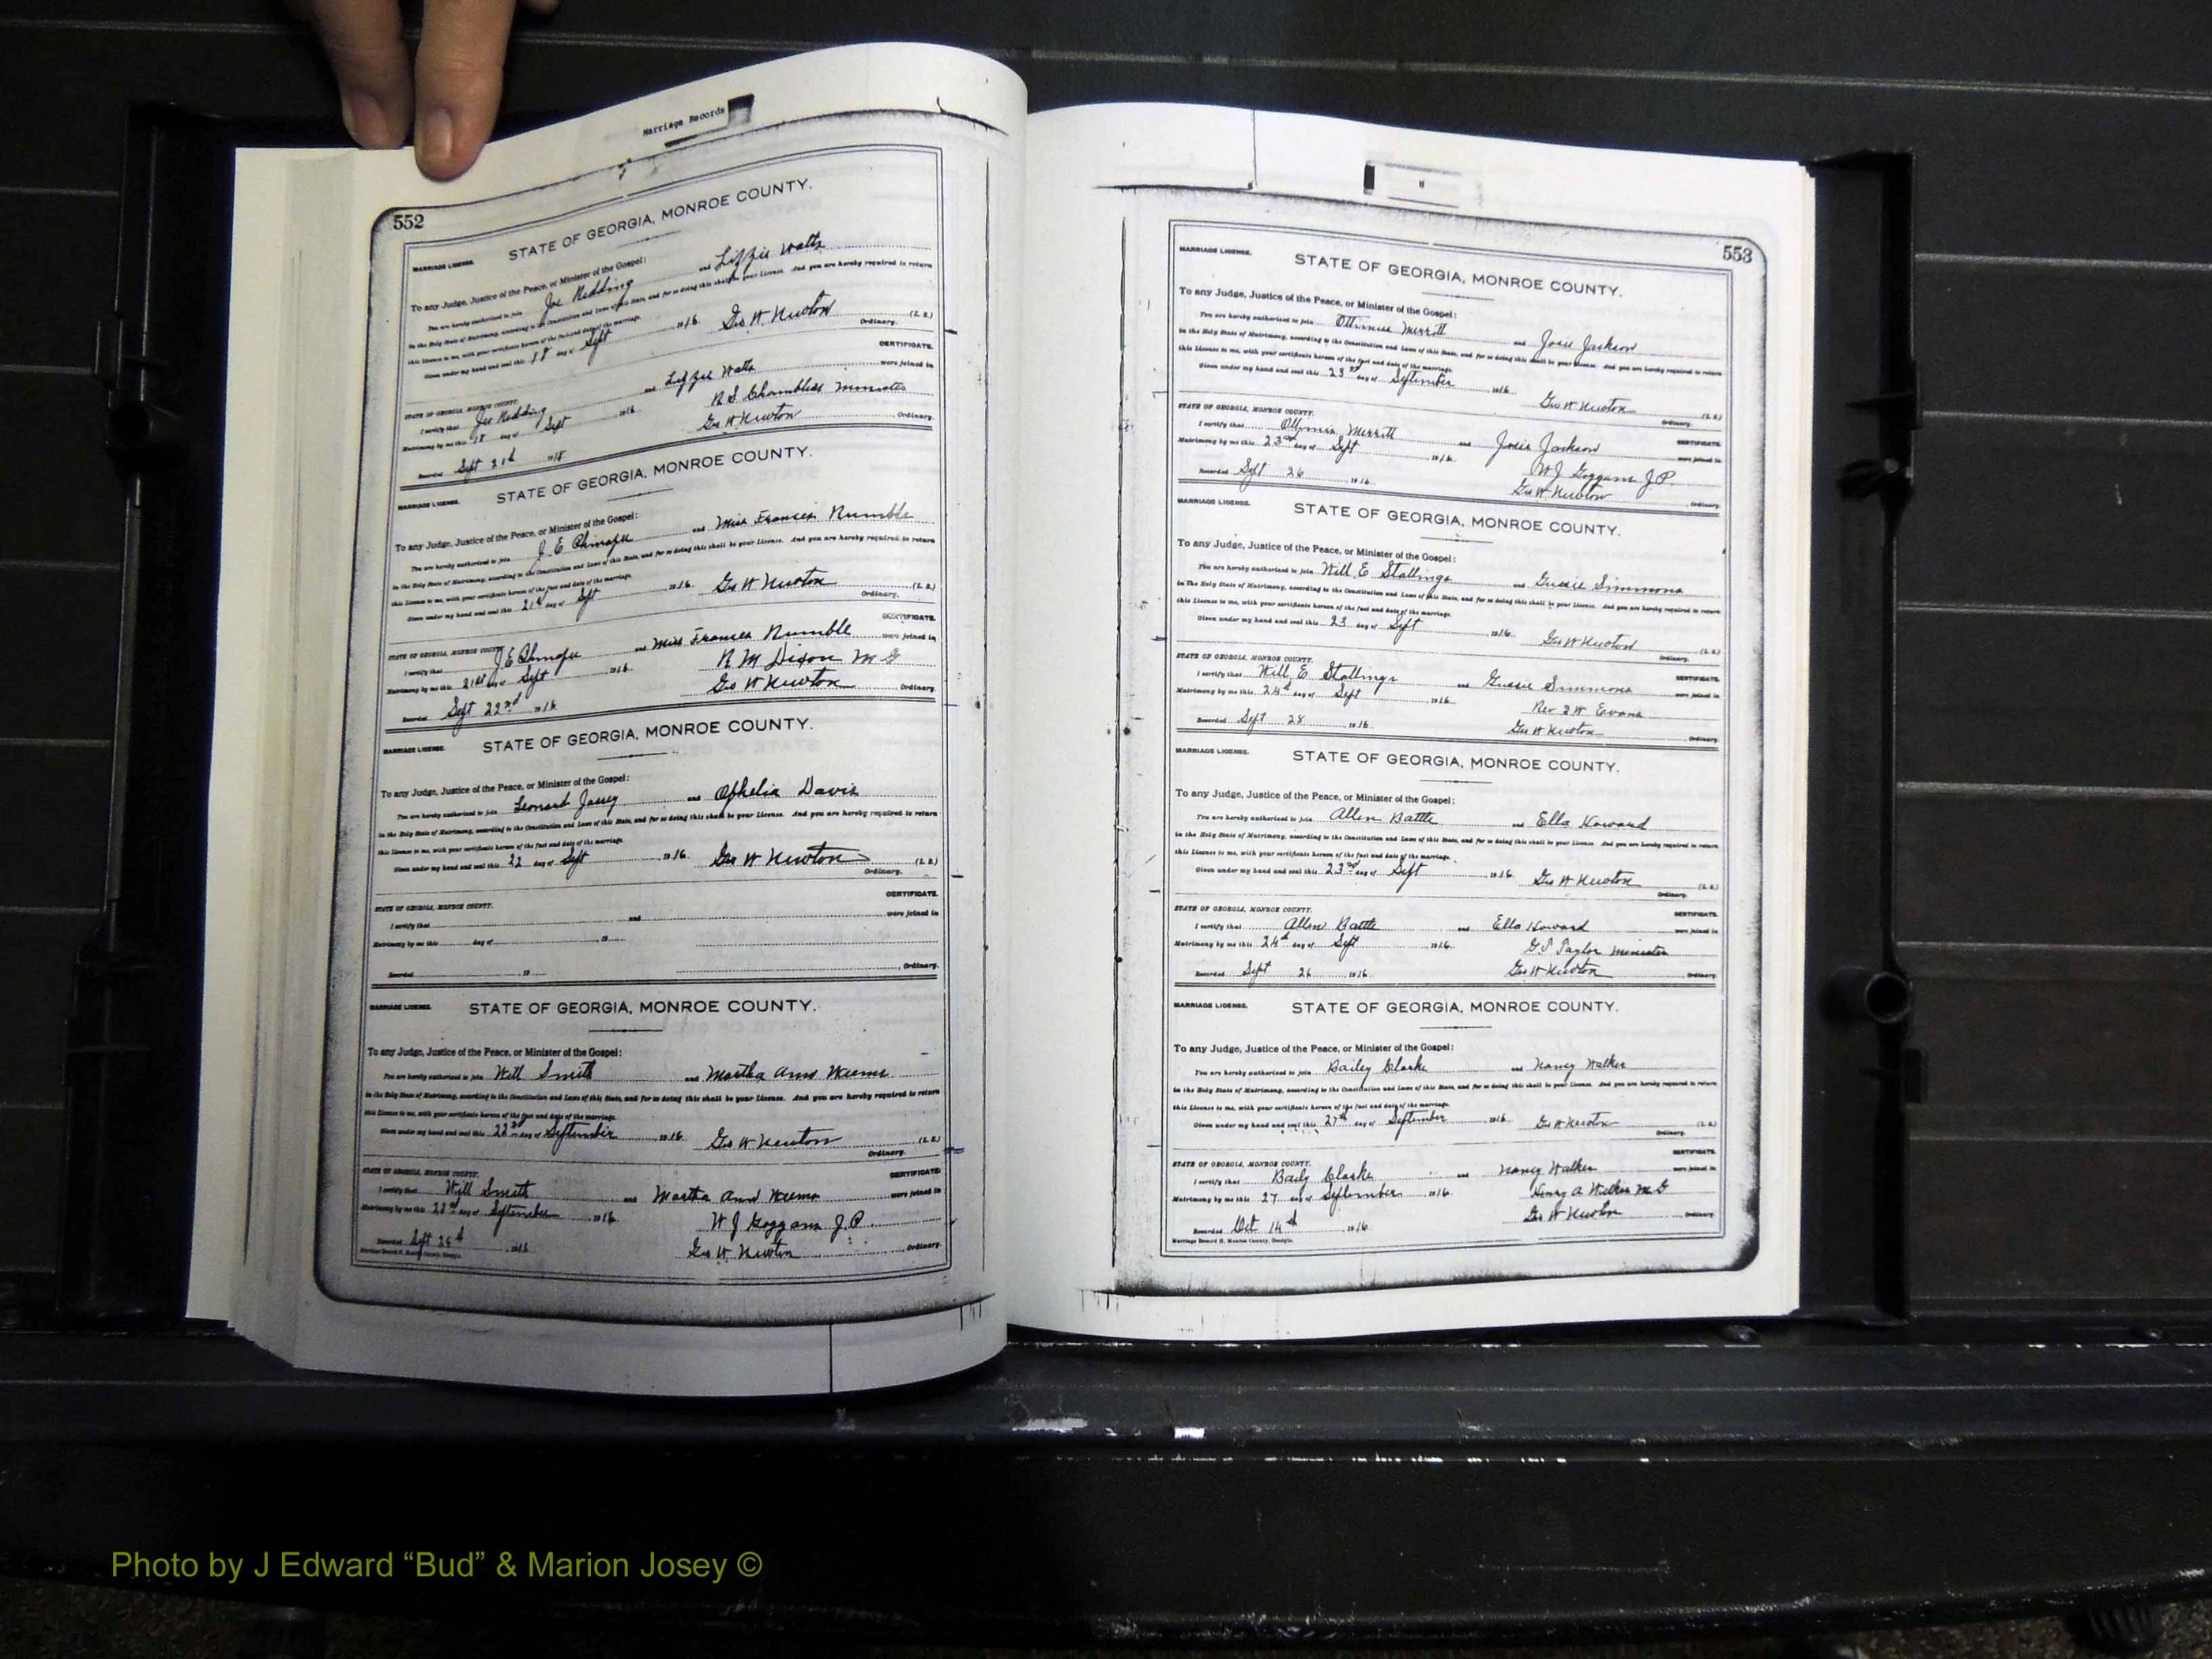 Marriage Records
552
STATE OF GEORGIA, MONROE COUNTY.
MARRIAGE LICENSE.
To any Judge, Justice of the Peace, or Minister of the Gospel:
You are hereby authorized to join Joe Redding and Lizzie Watts
in the Holy State of Matrimony, according to the Constitution and Laws of this State, and for so doing this shall be your License. And you are hereby required to return
this License to me, with your certificate hereon of the fact and date of the marriage.
Given under my hand and seal this 18 day of Sept 1916. Geo W. Newton (L. S.)
Ordinary.
CERTIFICATE.
STATE OF GEORGIA, MONROE COUNTY.
I certify that Joe Redding and Lizzie Watts were joined in
Matrimony by me this 18 day of Sept 1916. R S Chambliss Minister
Recorded Sept 21st 1916 Geo W. Newton, Ordinary.
MARRIAGE LICENSE. STATE OF GEORGIA, MONROE COUNTY.
To any Judge, Justice of the Peace, or Minister of the Gospel:
You are hereby authorized to join J. E. and Miss Frances Rumble
in the Holy State of Matrimony, according to the Constitution and Laws of this State, and for so doing this shall be your License. And you are hereby required to return
this License to me, with your certificate hereon of the fact and date of the marriage.
Given under my hand and seal this 21st day of Sept 1916. Geo W Newton (L. S.)
Ordinary.
CERTIFICATE.
STATE OF GEORGIA, MONROE COUNTY.
I certify that J. E. and Miss Frances Rumble were joined in
Matrimony by me this 21st day of Sept, 1916. R M Dixon M G
Recorded Sept 22nd, 1916. Geo W Newton, Ordinary.
MARRIAGE LICENSE. STATE OF GEORGIA, MONROE COUNTY.
To any Judge, Justice of the Peace, or Minister of the Gospel:
You are hereby authorized to join Leonard Jossey and Ophelia Davis
in the Holy State of Matrimony, according to the Constitution and Laws of this State, and for so doing this shall be your License. And you are hereby required to return
this License to me, with your certificate hereon of the fact and date of the marriage.
Given under my hand and seal this 22 day of Sept, 1916. Geo W Newton (L. S.)
Ordinary.
CERTIFICATE.
STATE OF GEORGIA, MONROE COUNTY.
I certify that and were joined in
Matrimony by me this day of, 19
Recorded, 19, Ordinary.
MARRIAGE LICENSE. STATE OF GEORGIA, MONROE COUNTY.
To any Judge, Justice of the Peace, or Minister of the Gospel:
You are hereby authorized to join Will Smith and Martha Ann Weems
in the Holy State of Matrimony, according to the Constitution and Laws of this State, and for so doing this shall be your License. And you are hereby required to return
this License to me, with your certificate hereon of the fact and date of the marriage.
Given under my hand and seal this 22nd day of September, 1916 Geo W Newton (L. S.)
Ordinary.
CERTIFICATE.
STATE OF GEORGIA, MONROE COUNTY.
I certify that Will Smith and Martha Ann Weems were joined in
Matrimony by me this day of September, 1916 W J Goggans J. P.
Recorded Sept 1916 Geo W Newton Ordinary.
Marriage Record H, Monroe County, Georgia.
553
MARRIAGE LICENSE. STATE OF GEORGIA, MONROE COUNTY.
To any Judge, Justice of the Peace, or Minister of the Gospel:
You are hereby authorized to join Merritt and Josie Jackson
in the Holy State of Matrimony, according to the Constitution and Laws of this State, and for so doing this shall be your License. And you are hereby required to return
this License to me, with your certificate hereon of the fact and date of the marriage.
Given under my hand and seal this 23rd day of September 1916. Geo W Newton (L. S.)
Ordinary.
STATE OF GEORGIA, MONROE COUNTY. CERTIFICATE.
I certify that Merritt and Josie Jackson were joined in
Matrimony by me this 23rd day of Sept, 1916. W J Goggans J. P.
Recorded Sept 26, 1916. Geo W Newton, Ordinary.
MARRIAGE LICENSE. STATE OF GEORGIA, MONROE COUNTY.
To any Judge, Justice of the Peace, or Minister of the Gospel:
You are hereby authorized to join Will E Stallings and Gussie Simmons
in the Holy State of Matrimony, according to the Constitution and Laws of this State, and for so doing this shall be your License. And you are hereby required to return
this License to me, with your certificate hereon of the fact and date of the marriage.
Given under my hand and seal this 23 day of Sept, 1916. Geo W Newton (L. S.)
Ordinary.
STATE OF GEORGIA, MONROE COUNTY. CERTIFICATE.
I certify that Will E Stallings and Gussie Simmons were joined in
Matrimony by me this 24th day of Sept, 1916. Rev Evans
Recorded Sept 28, 1916. Geo W Newton, Ordinary.
MARRIAGE LICENSE. STATE OF GEORGIA, MONROE COUNTY.
To any Judge, Justice of the Peace, or Minister of the Gospel:
You are hereby authorized to join Allen Battle and Ella Howard
in the Holy State of Matrimony, according to the Constitution and Laws of this State, and for so doing this shall be your License. And you are hereby required to return
this License to me, with your certificate hereon of the fact and date of the marriage.
Given under my hand and seal this 23rd day of Sept, 1916 Geo W Newton (L. S.)
Ordinary.
STATE OF GEORGIA, MONROE COUNTY. CERTIFICATE.
I certify that Allen Battle and Ella Howard were joined in
Matrimony by me this 24th day of Sept, 1916 Taylor Minister
Recorded Sept 26, 1916 Geo W Newton Ordinary.
MARRIAGE LICENSE. STATE OF GEORGIA, MONROE COUNTY.
To any Judge, Justice of the Peace, or Minister of the Gospel:
You are hereby authorized to join Bailey Clarke and Nancy Walker
in the Holy State of Matrimony, according to the Constitution and Laws of this State, and for so doing this shall be your License. And you are hereby required to return
this License to me, with your certificate hereon of the fact and date of the marriage.
Given under my hand and seal this 27th day of September 1916 Geo W Newton (L. S.)
Ordinary.
STATE OF GEORGIA, MONROE COUNTY. CERTIFICATE.
I certify that Baily Clarke and Nancy Walker were joined in
Matrimony by me this 27 day of September, 1916. Henry A Walker M G
Recorded Oct 14th, 1916 Geo W Newton, Ordinary
Marriage Record H, Monroe County, Georgia.
Photo by J Edward “Bud” & Marion Josey ©